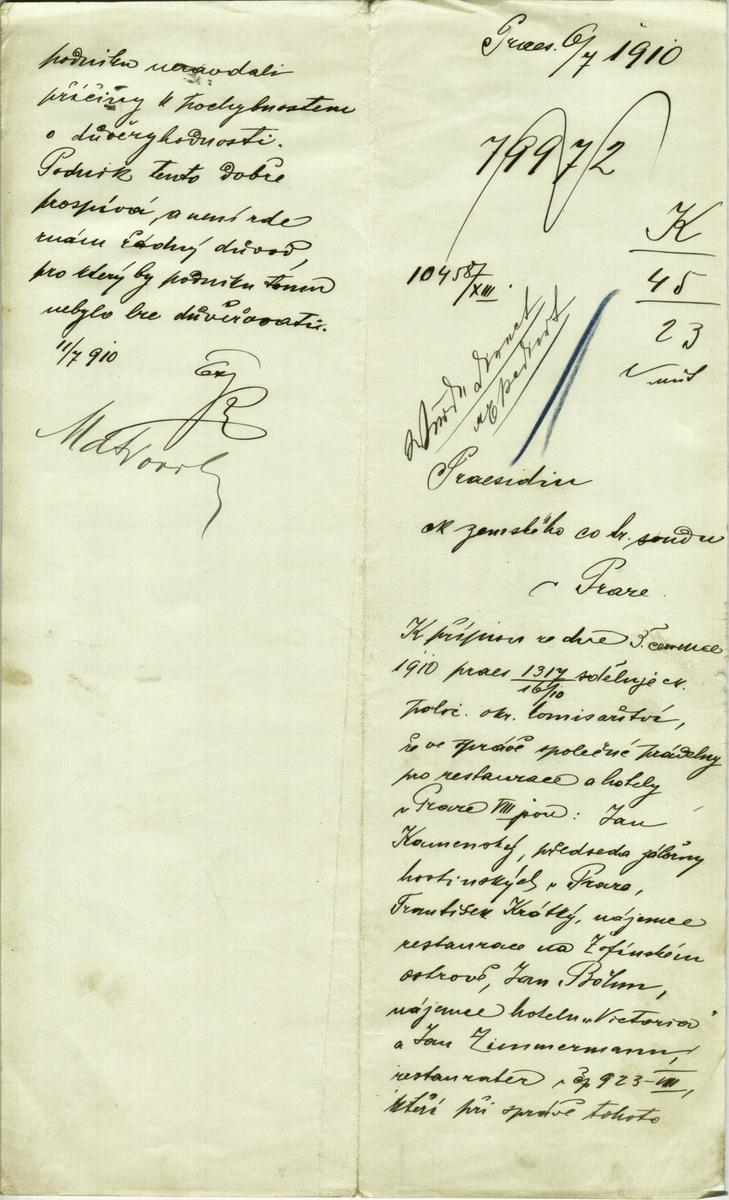 Praes. 6/7 1910
79972
K
45
23
10458/XIII.
Praesidiu
ck zemského co tr. soudu
v Praze.
K přípisu ze dne 3. července
1910 praes 1317/16/10 sděluje ck.
polic. okr. komisařství,
že ve správě společné prádelny
pro restaurace a hotely
v Praze VIII jsou: Jan
Kamenský, předseda záložny
hostinských v Praze,
František Krátký, nájemce
restaurace na Žofínském
ostrově, Jan Böhm,
nájemce hotelu „Victoria"
a Jan Zimmermann,
restauratér čp 923-III,
kteří při správě tohoto
podniku nezavdali
příčiny k pochybnostem
o důvěryhodnosti.
Podnik tento dobře
prospívá, a není zde
znám žádný důvod,
pro který by podniku tomu
nebylo lze důvěřovati.
11/7 910